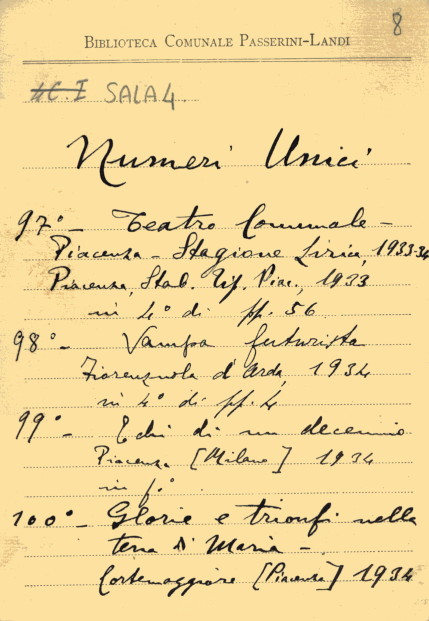 8
BIBLIOTECA COMUNALE PASSERINI-LANDI
4C. I SALA 4.
Numeri Unici
97° - Teatro Comunale -
Piacenza - Stagione Lirica, 1933-34
Piacenza, Stab. Tip. Piac., 1933
in 4° di pp. 56
98° - Vampa futurista
Fiorenzuola d'Arda, 1934
in 4° di pp. 4
99° - Echi di un decennio
Piacenza [Milano] 1934
in f.°
100° - Glorie e trionfi nella
terra di Maria -
Cortemaggiore [Piacenza] 1934